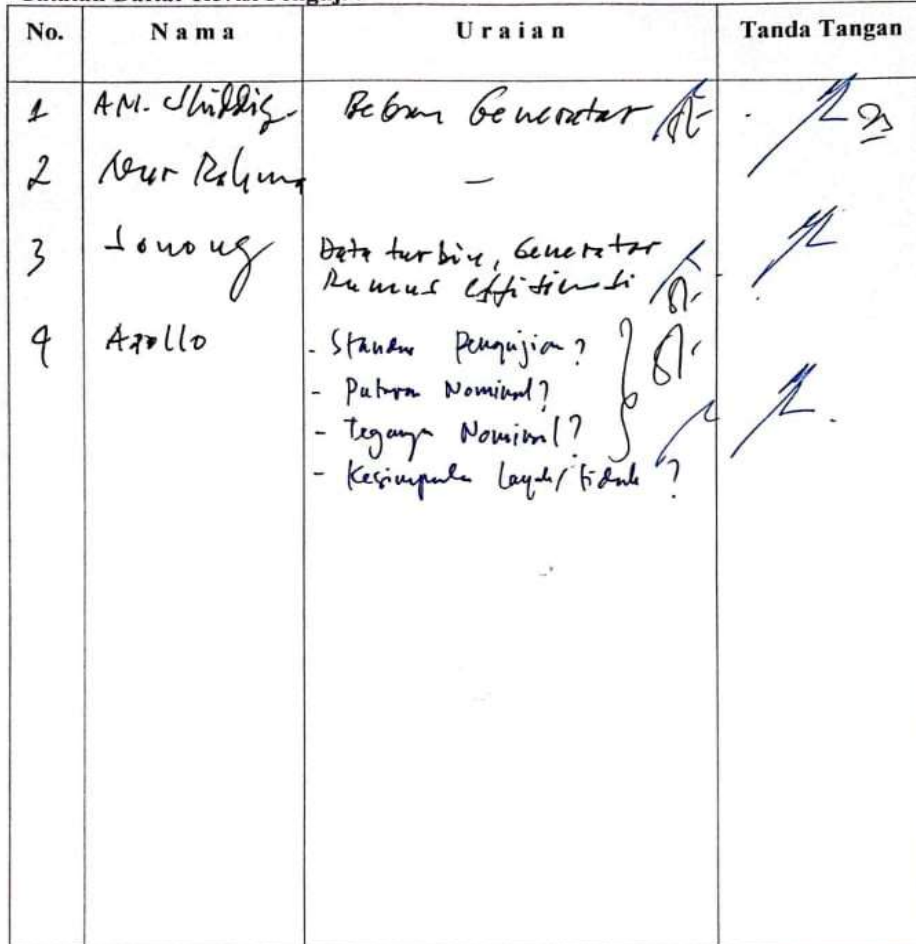 No. Nama Uraian Tanda Tangan
1 A.M. Shiddiq Beban Generator
2 Nur Rahma -
3 Sonong Data turbin, Generator
Rumus effisiensi
4 Apollo - Standar Pengujian?
- Putaran Nominal?
- Tegangan Nominal?
- Kesimpulan layak/tidak?